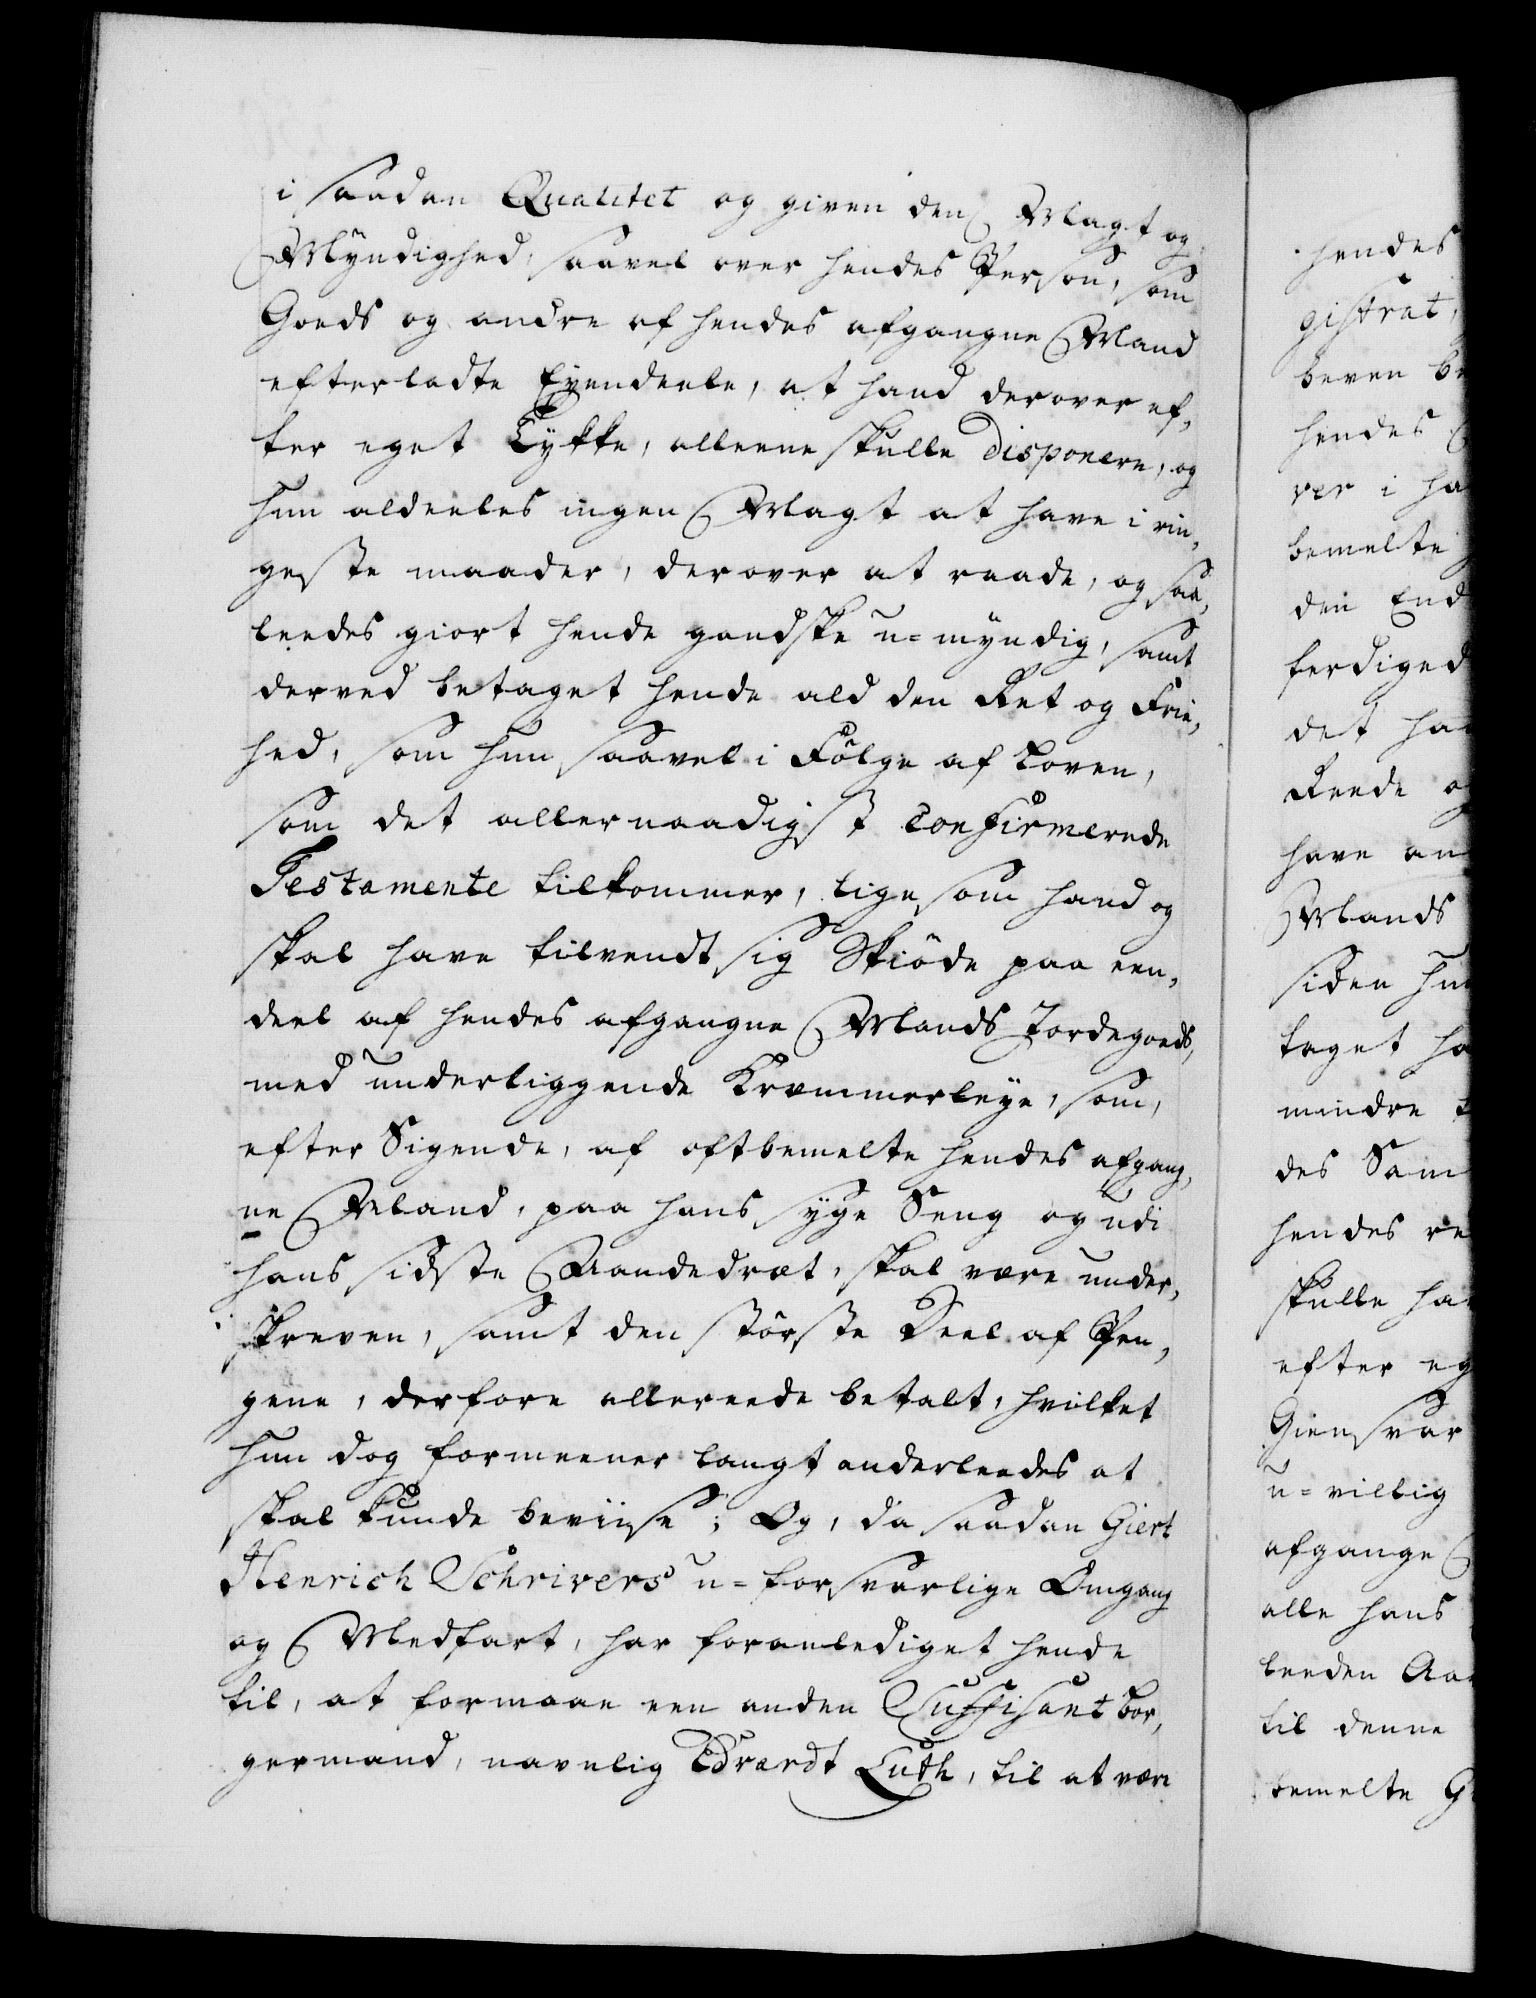 i saadan Qualitet og given den Magt og
Myndighed, saavel over hendes Person, som
Goeds og andre af hendes afgangne Mand
efterladte Eyendeele, at hand derover ef,
ter eget Tykke, alleene skulle disponere, og
hun aldeeles ingen Magt at have i rin,
geste maader, derover at raade, og saa,
leedes giort hende gandske u=myndig, samt
derved betaget hende ald den Ret og Frie,
hed, som hun saavel i Følge af Loven,
som det allernaadigst confirmerede
Testamente tilkommer, ligesom hand og
skal have tilvendt sig Skiøde paa een,
deel af hendes afgangne Mands Jordegoeds,
med underliggende Krammerleye, som,
efter Sigende, af oftbemelte hendes afgang,
ne Mand, paa hans syge Seng og udi
hans sidste Aandedræt, skal være under,
skreven, samt den største Deel af Pen,
gene, derfore allereede betalt, hvilket
hun dog formeener langt anderleedes at
skal kunde beviise; Og, da saadan Giert
Henrich Schrivers u=forsvarlige Omgang
og Medfart, har foranlediget hende
til, at formaae een anden Suffisant bor,
germand, navnlig Edvardt Luth, til at være
hendes
gistrat,
beven
hendes
ver i
bemelte
den End
ferdiged
det
Reede
have
Mands
siden
taget
mindre
des Sam
hendes
skulle
efter
Giensvar
u=villig
afgange
alle hans
leeden
til denne
bemelte